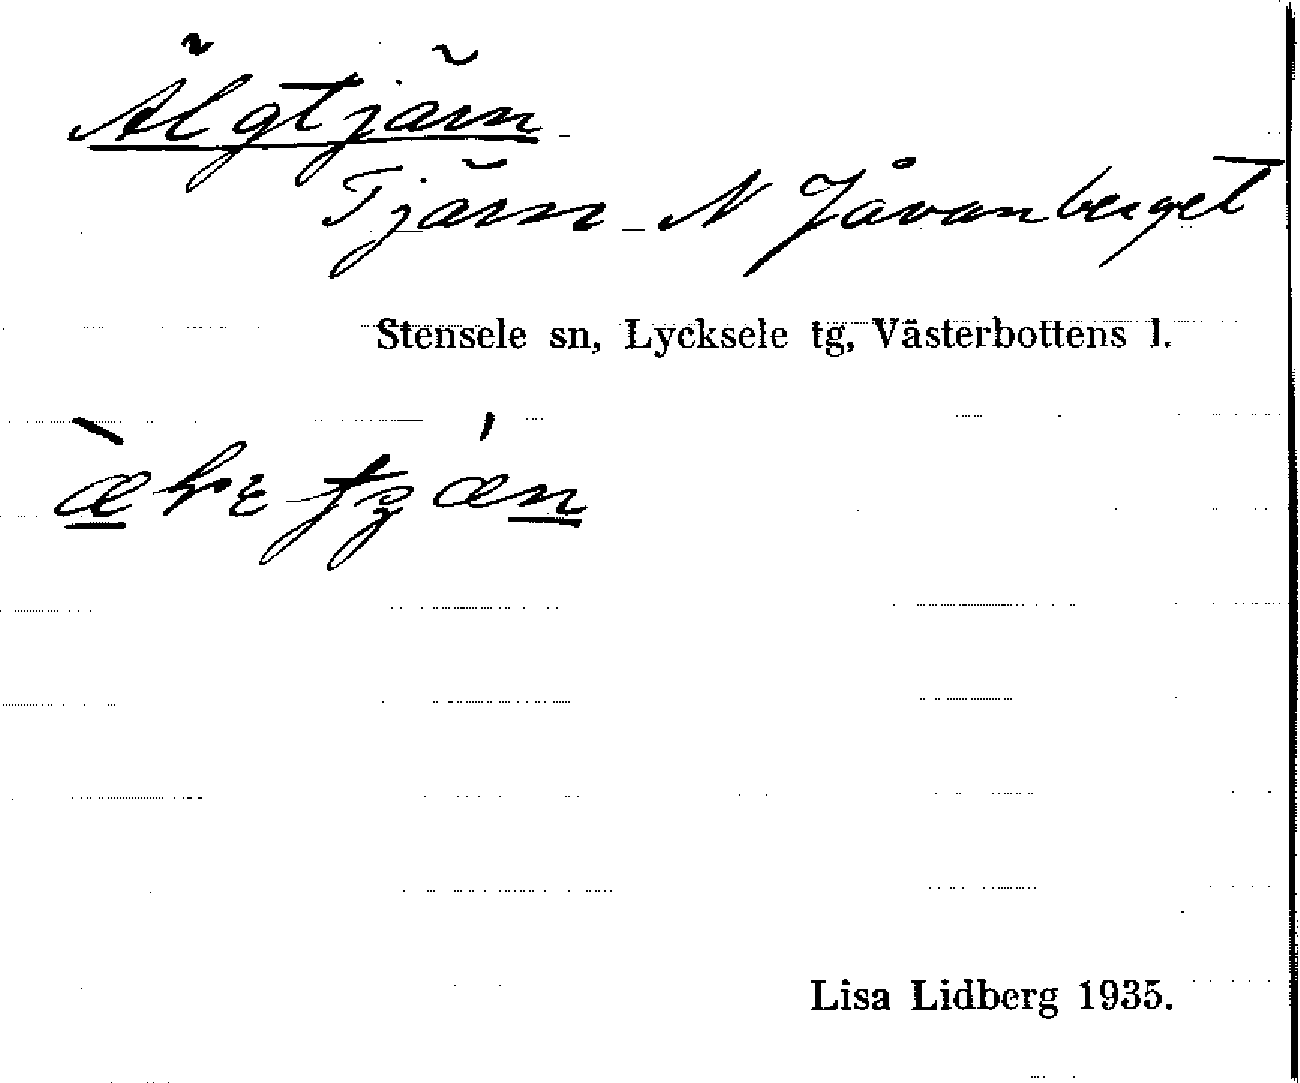 Älgtjärn
Tjärn N Jåvanberget
Stensele sn, Lycksele tg, Västerbottens l.
Lisa Lidberg 1935.